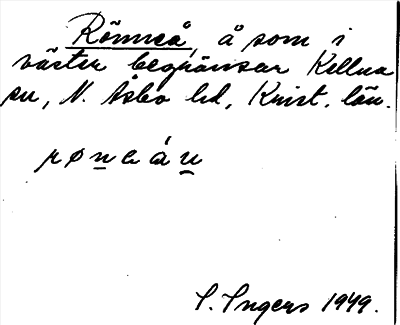 Rönneå, å som i
väster begränsar Kellna
sn, N. Åsbo hd, Krist. län.
røneån
S. Ingers 1949.